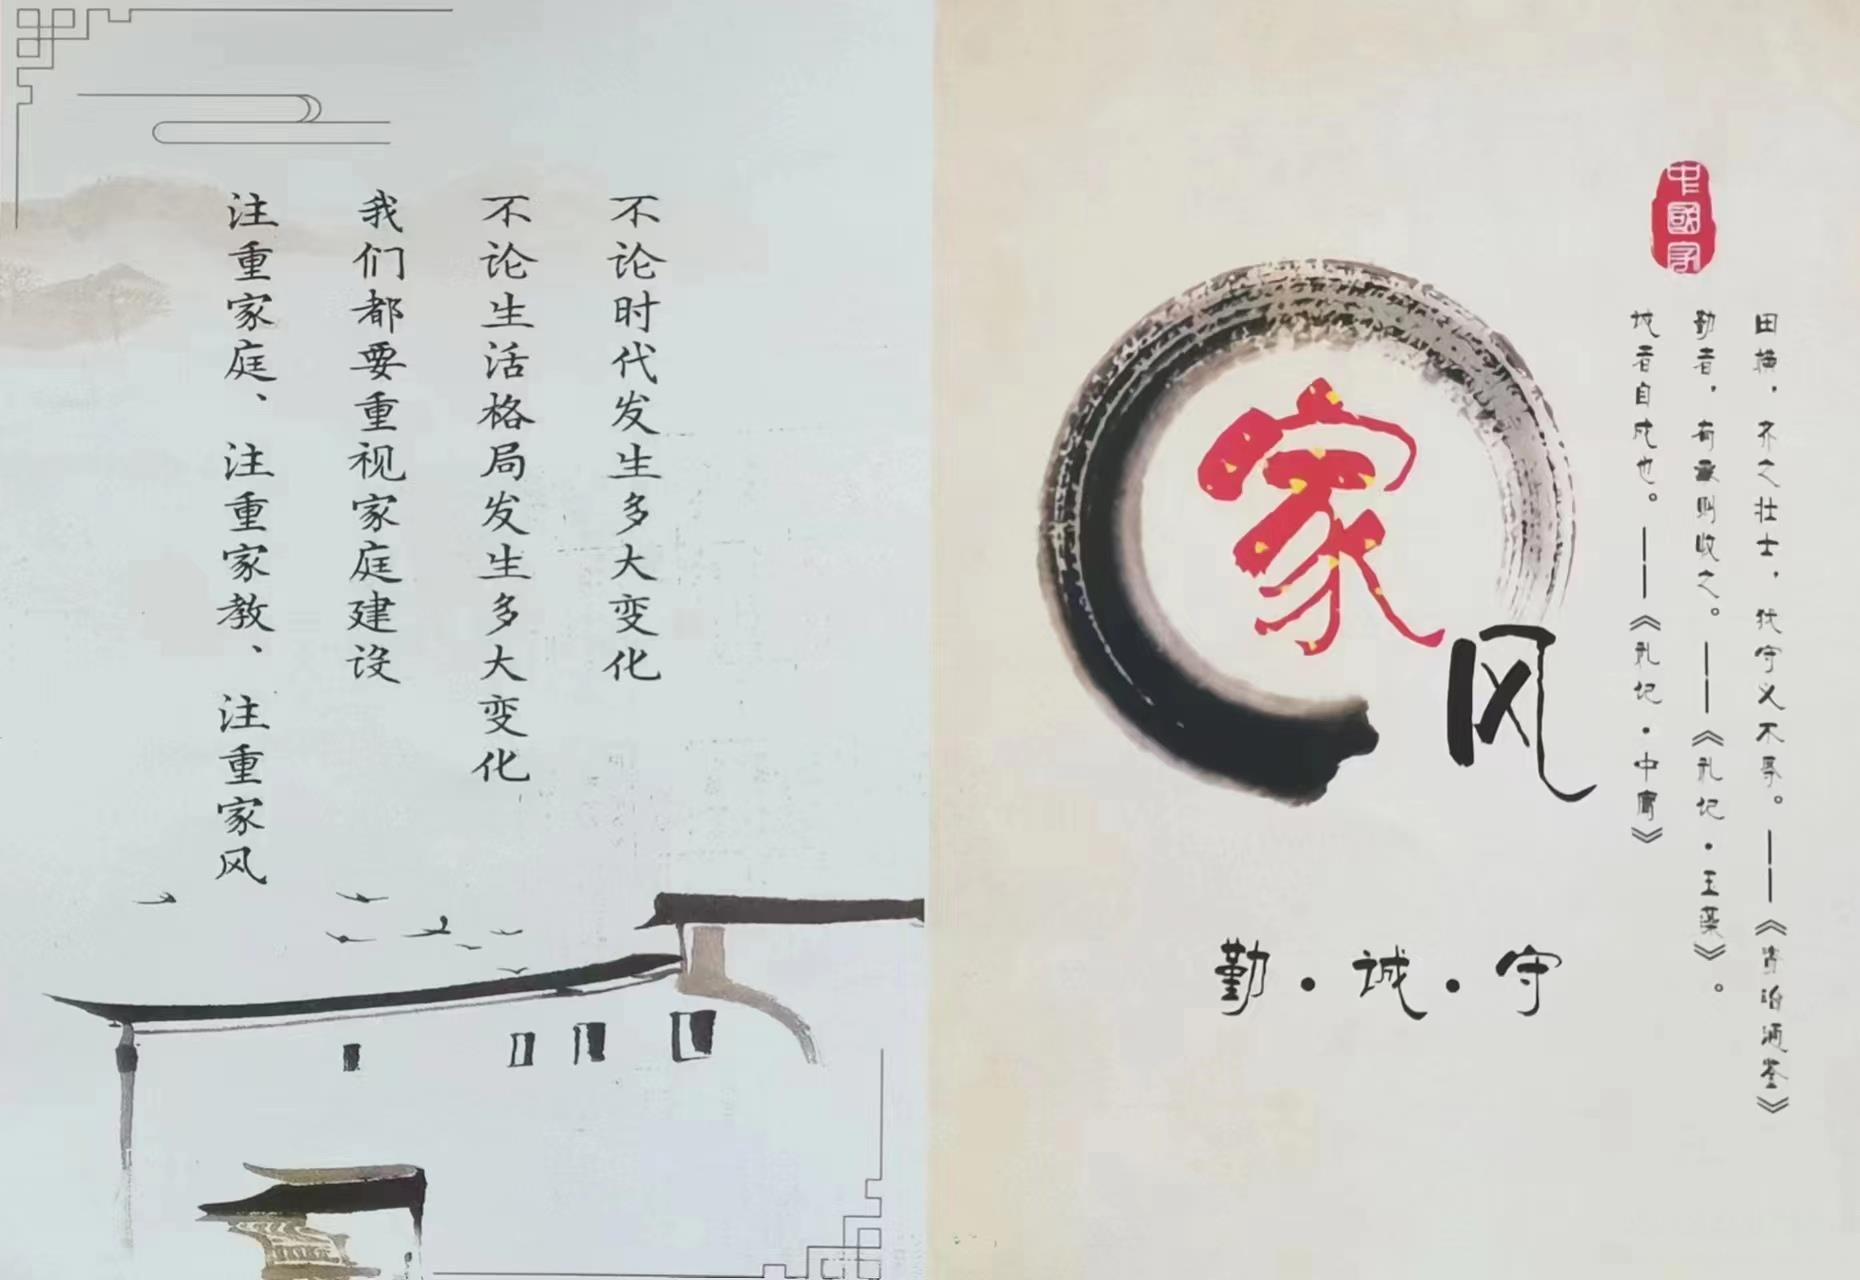 不论时代发生多大变化
不论生活格局发生多大变化
我们都要重视家庭建设
注重家庭、注重家教、注重家风
中國家
田横，齐之壮士，犹守义不辱。——《资治通鉴》
勤者，有事则收之。——《礼记·玉藻》。
诚者自成也。——《礼记·中庸》
家风
勤·诚·守